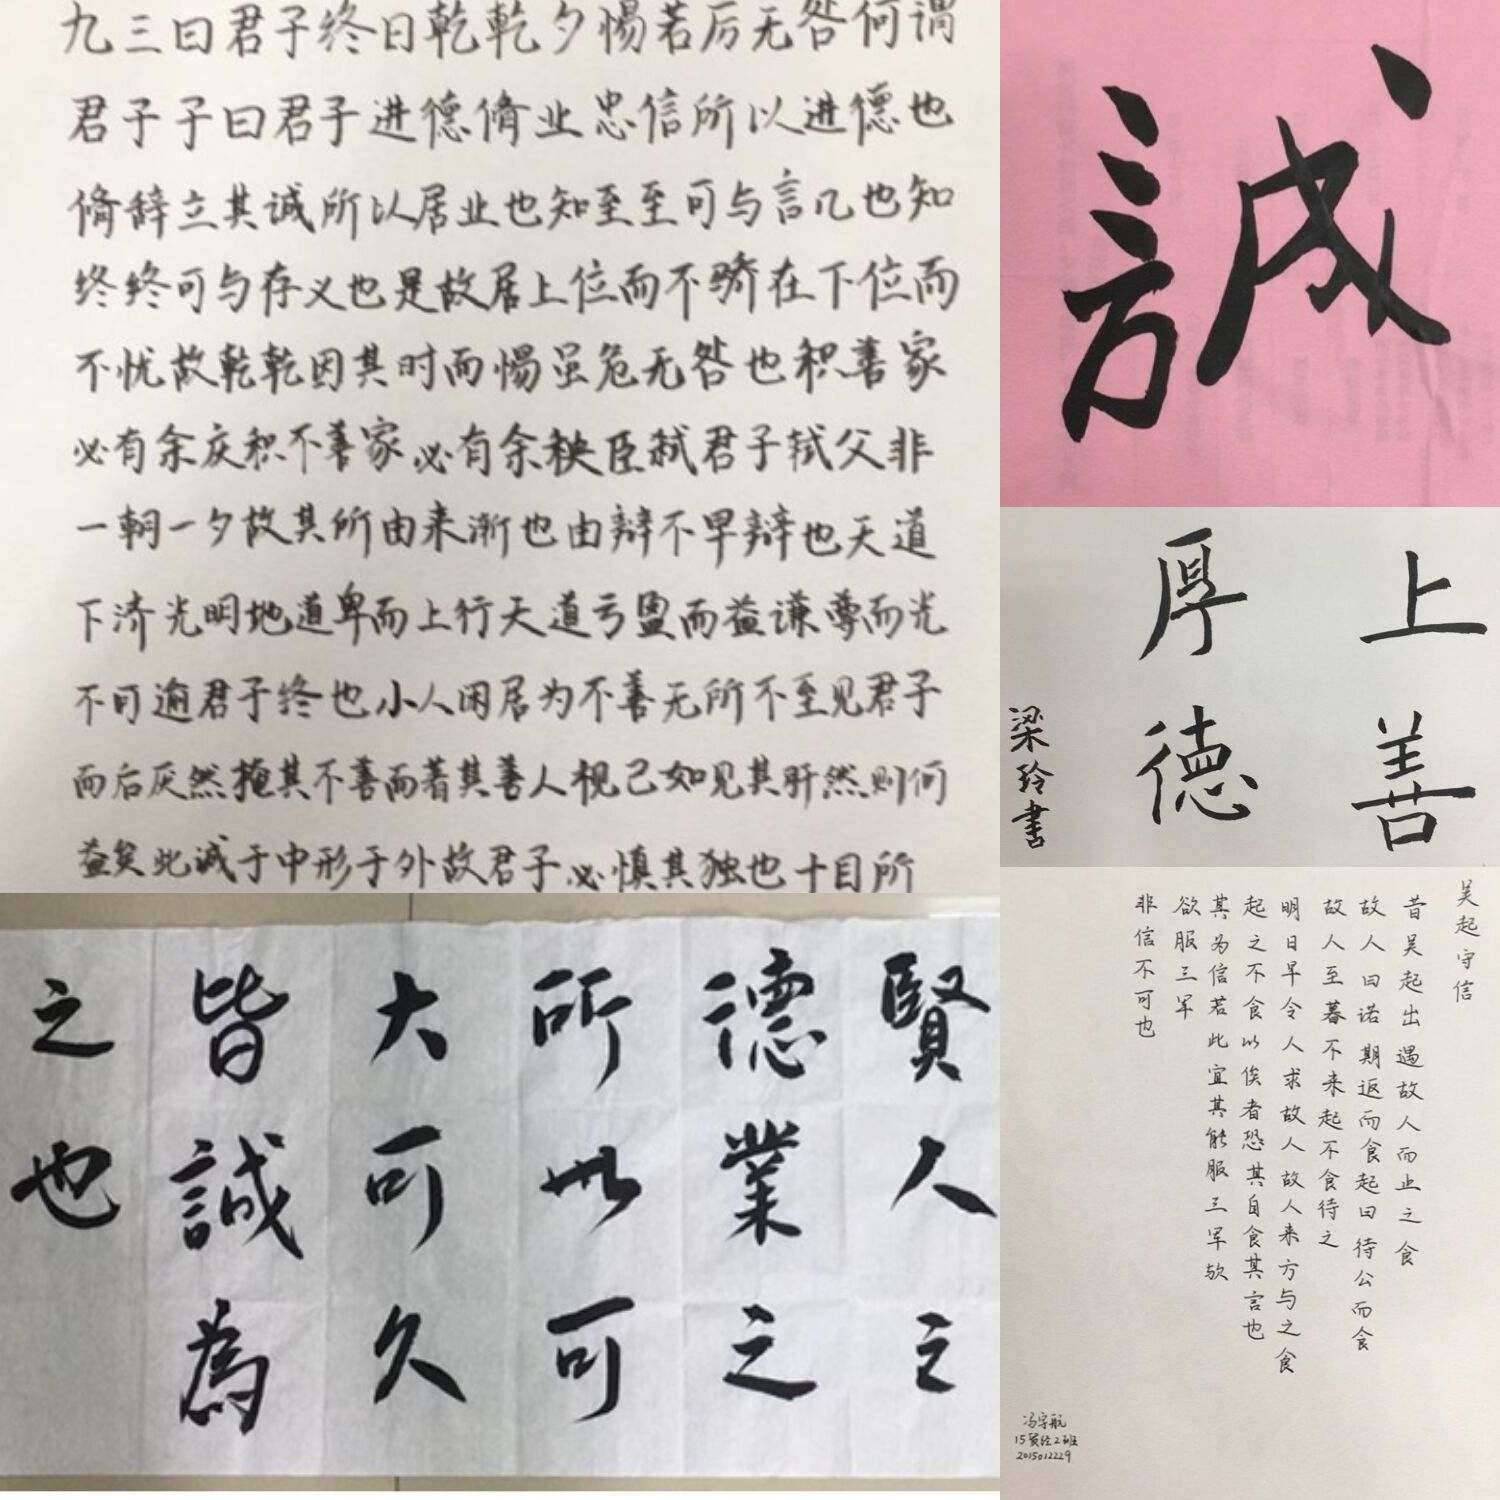 九三曰君子终日乾乾夕惕若厉无咎何谓
君子子曰君子进德脩业忠信所以进德也
脩辞立其诚所以居业也知至至可与言几也知
终终可与存义也是故居上位而不骄在下位而
不忧故乾乾因其时而惕虽危无咎也积善家
必有余庆积不善家必有余秧臣弑君子弑父非
一朝一夕故其所由来渐也由辩不早辩也天道
下济光明地道卑而上行天道亏盈而益谦尊而光
不可逾君子终也小人闲居为不善无所不至见君子
而后厌然掩其不善而著其善人视己如见其肝然则何
益矣此诚于中形于外故君子必慎其独也十目所
誠
上善
厚德
梁玲書
賢人之
德業之
所以可
大可久
皆誠為
之也
吴起守信
昔吴起出遇故人而止之食
故人曰诺期返而食起曰待公而食
故人至暮不来起不食待之
明日早令人求故人故人来方与之食
起之不食以俟者恐其自食其言也
其为信若此宜其能服三军欤
欲服三军
非信不可也
冯宇航
15贸经2班
2015012229